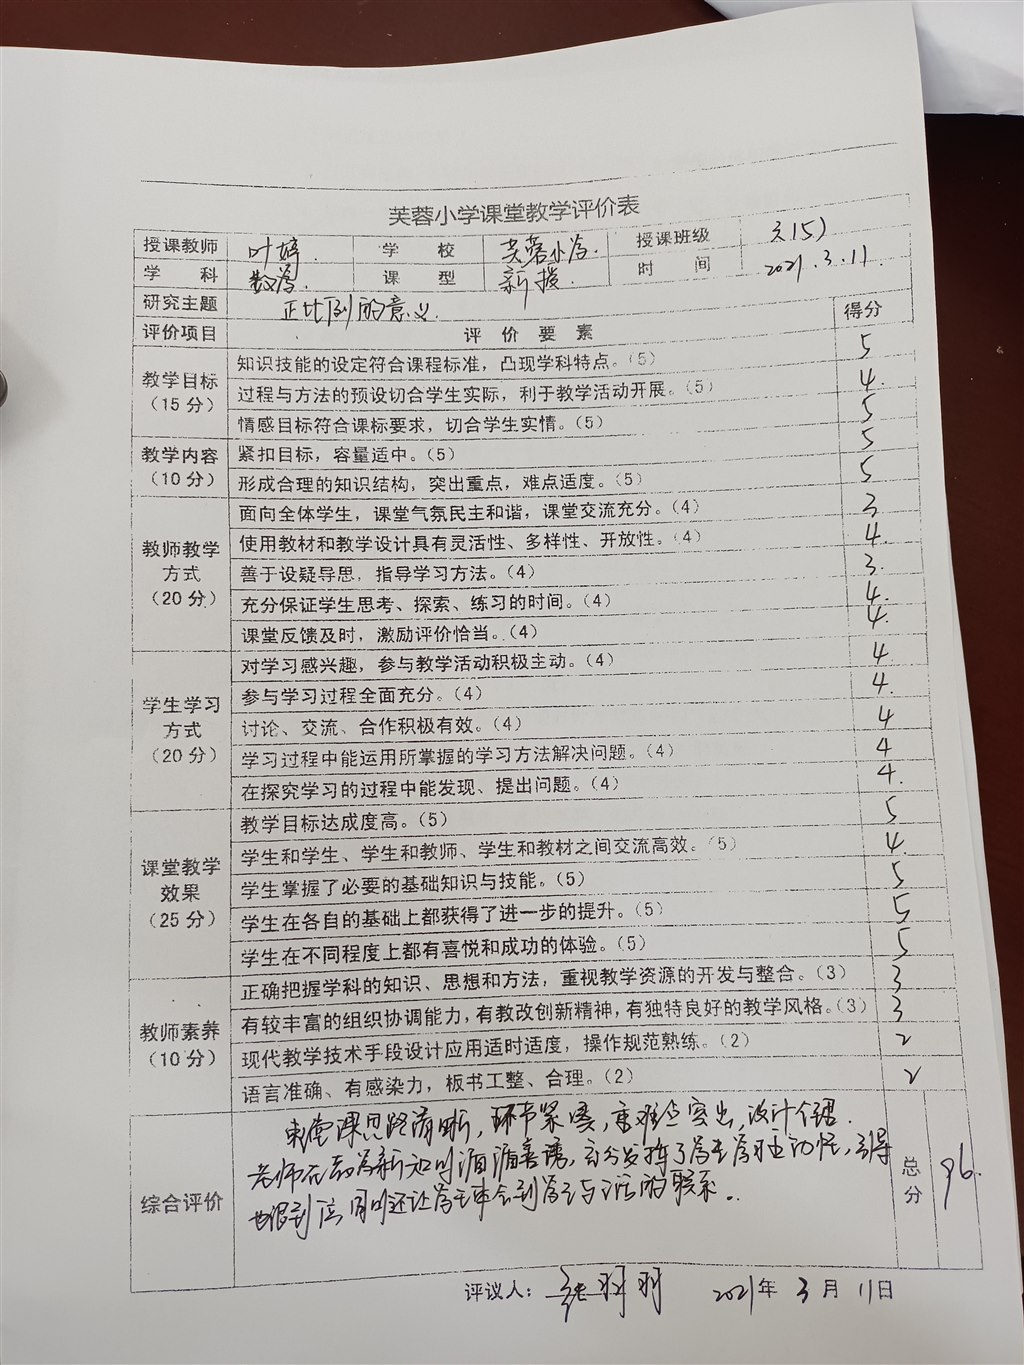 芙蓉小学课堂教学评价表
授课教师 叶婷. 学 校 芙蓉小学. 授课班级 六(5)
学 科 数学. 课 型 新授. 时 间 2021.3.11
研究主题 正比例的意义.
评价项目 评 价 要 素 得分
教学目标（15分）
知识技能的设定符合课程标准，凸现学科特点。（5） 5
过程与方法的预设切合学生实际，利于教学活动开展。（5） 4.
情感目标符合课标要求，切合学生实情。（5） 5
教学内容（10分）
紧扣目标，容量适中。（5） 5
形成合理的知识结构，突出重点，难点适度。（5） 5
教师教学方式（20分）
面向全体学生，课堂气氛民主和谐，课堂交流充分。（4） 3
使用教材和教学设计具有灵活性、多样性、开放性。（4） 4.
善于设疑导思，指导学习方法。（4） 3.
充分保证学生思考、探索、练习的时间。（4） 4.
课堂反馈及时，激励评价恰当。（4） 4.
学生学习方式（20分）
对学习感兴趣，参与教学活动积极主动。（4） 4
参与学习过程全面充分。（4） 4.
讨论、交流、合作积极有效。（4） 4
学习过程中能运用所掌握的学习方法解决问题。（4） 4
在探究学习的过程中能发现、提出问题。（4） 4.
课堂教学效果（25分）
教学目标达成度高。（5） 5
学生和学生、学生和教师、学生和教材之间交流高效。（5） 4.
学生掌握了必要的基础知识与技能。（5） 5
学生在各自的基础上都获得了进一步的提升。（5） 5
学生在不同程度上都有喜悦和成功的体验。（5） 5
教师素养（10分）
正确把握学科的知识、思想和方法，重视教学资源的开发与整合。（3） 3
有较丰富的组织协调能力，有教改创新精神，有独特良好的教学风格。（3） 3
现代教学技术手段设计应用适时适度，操作规范熟练。（2） 2
语言准确、有感染力，板书工整、合理。（2） 2
综合评价
课思路清晰，环节紧凑，重难点突出，设计合理.
老师在教学新知时循循善诱，充分发挥了学生学习主动性，引导
也很到位，同时还让学生体会到学习与生活的联系。
总分 96.
评议人： 2021年 3 月 11日